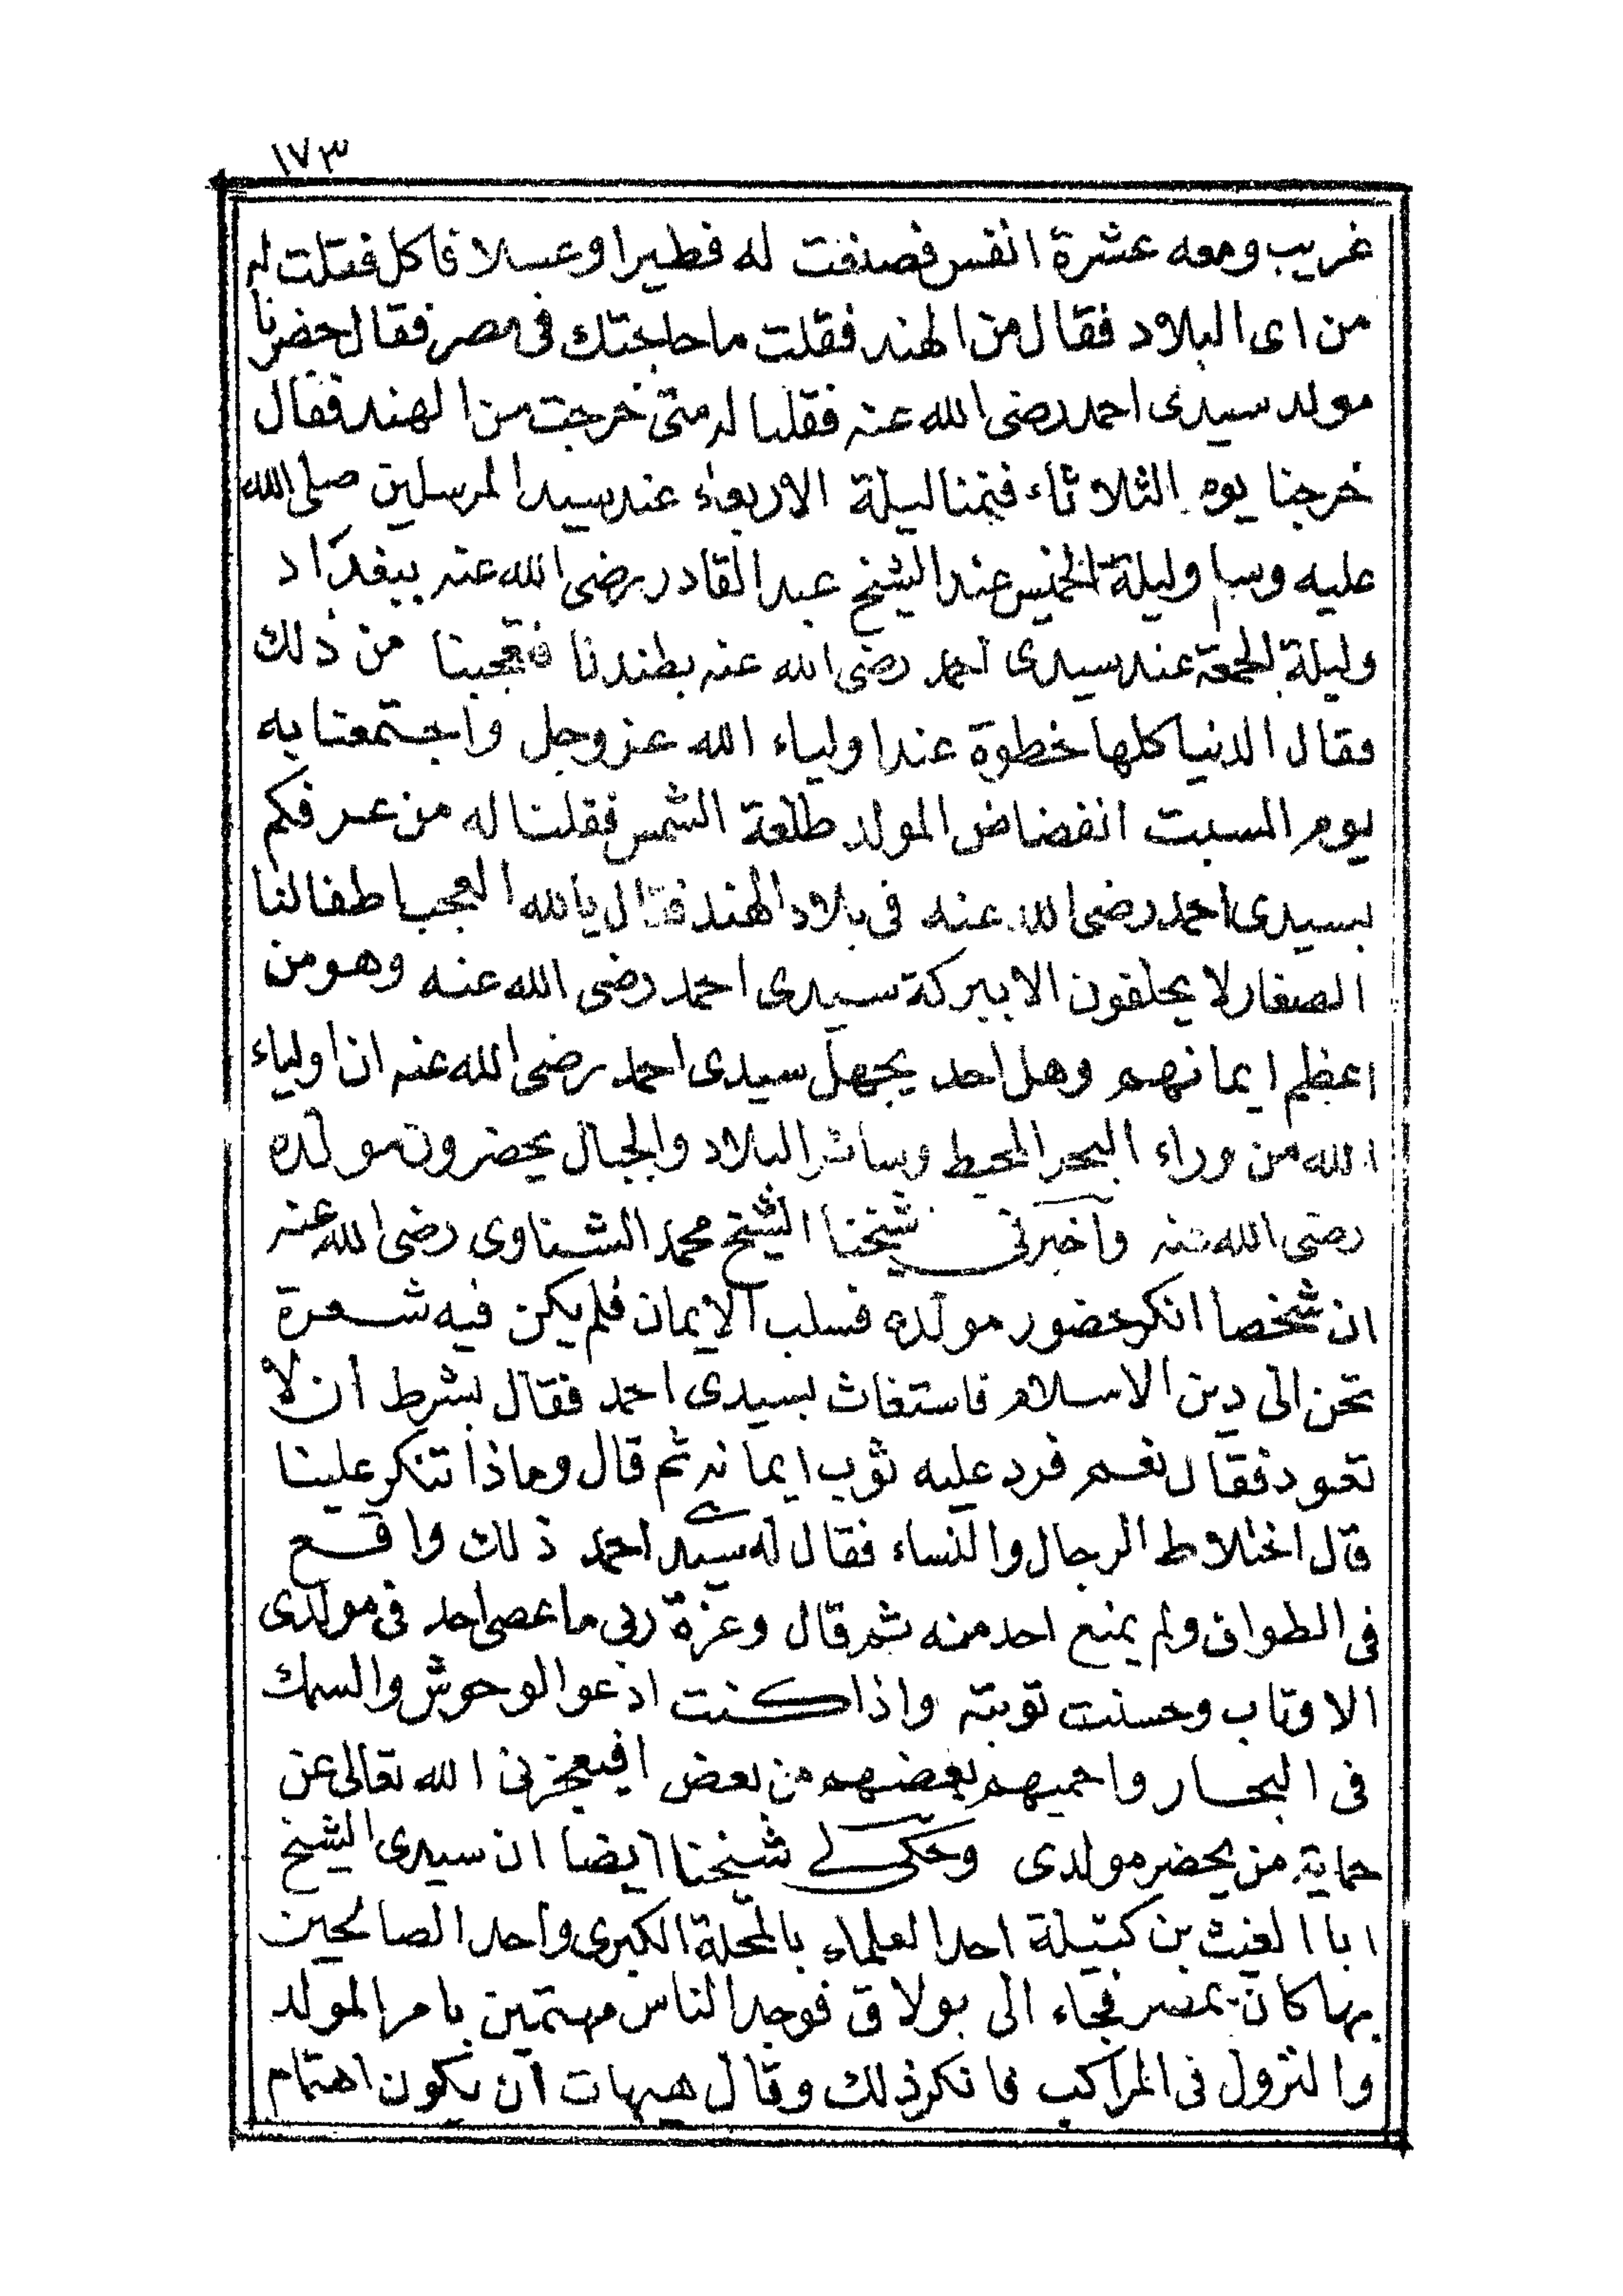 ١٧٣
غريب ومعه عشرة انفس فصنعت له فطيرا وعسلا فاكل فقلت له
من اى البلاد فقال من الهند فقلت ما حاجتك فى مصر فقال حضرنا
مولد سيدى احمد رضى الله عنه فقلنا له متى خرجت من الهند فقال
خرجنا يوم الثلاثاء فنمنا ليلة الاربعاء عند سيد المرسلين صلى الله
عليه وسلم وليلة الخميس عند الشيخ عبد القادر رضى الله عنه ببغداد
وليلة الجمعة عند سيدى احمد رضى الله عنه بطندتا فتعجبنا من ذلك
فقال الدنيا كلها خطوة عند اولياء الله عز وجل واجتمعنا به
يوم السبت انفضاض المولد طلعة الشمس فقلنا له من عرفكم
بسيدى احمد رضى الله عنه فى بلاد الهند فقال يالله العجب اطفالنا
الصغار لا يحلفون الا ببركة سيدى احمد رضى الله عنه وهو من
اعظم ايمانهم وهل احد يجهل سيدى احمد رضى الله عنه ان اولياء
الله من وراء البحر المحيط وسائر البلاد والجبال يحضرون مولده
رضى الله عنه واخبرنى شيخنا الشيخ محمد الشناوى رضى الله عنه
ان شخصا انكر حضور مولده فسلب الايمان فلم يكن فيه شعرة
تحن الى دين الاسلام فاستغاث بسيدى احمد فقال بشرط ان لا
تعود فقال نعم فرد عليه ثوب ايمانه ثم قال وماذا تنكر علينا
قال اختلاط الرجال والنساء فقال له سيدى احمد ذلك واقع
فى الطواف ولم يمنع احد منه ثم قال وعزة ربى ما عصى احد فى مولدى
الا وتاب وحسنت توبته واذا كنت ادعو الوحوش والسمك
فى البحار واحميهم بعضهم من بعض افيعجزنى الله تعالى عن
حماية من يحضر مولدى وحكى لى شيخنا ايضا ان سيدى الشيخ
ابا الغيث بن كتيلة احد العلماء بالمحلة الكبرى واحد الصالحين
بها كان بمصر فجاء الى بولاق فوجد الناس مهتمين بامر المولد
والنزول فى المراكب فانكر ذلك وقال هيهات ان يكون اهتمام